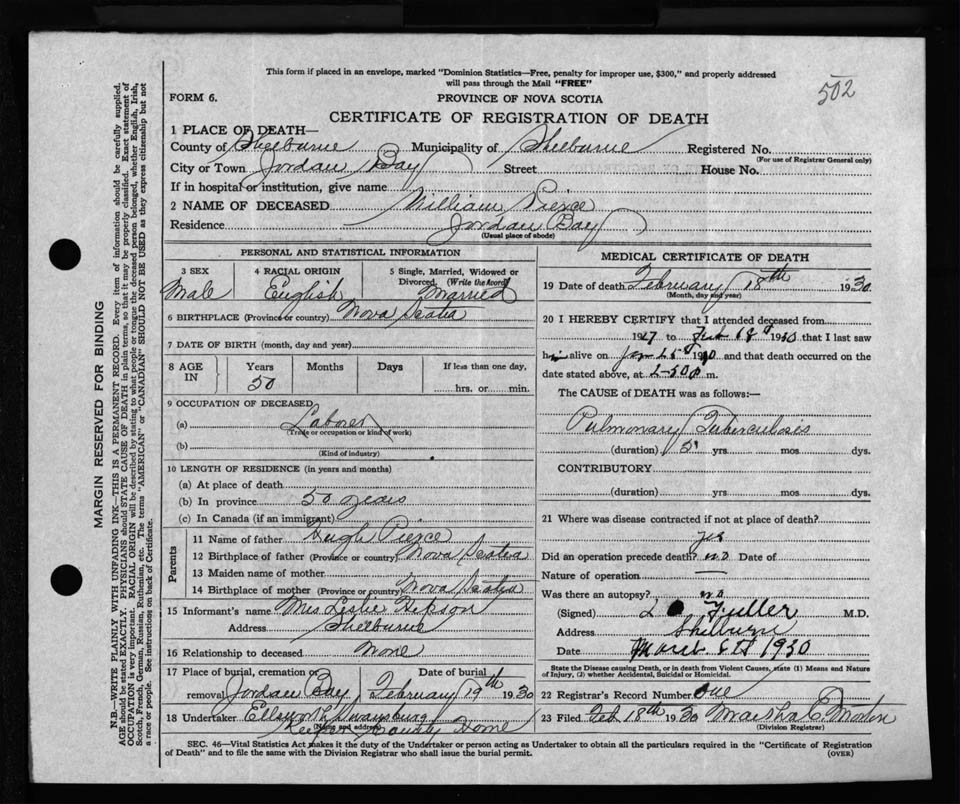 This form if placed in an envelope, marked "Dominion Statistics—Free, penalty for improper use, $300," and properly addressed
will pass through the Mail "FREE"
502
FORM 6.
PROVINCE OF NOVA SCOTIA
CERTIFICATE OF REGISTRATION OF DEATH
1 PLACE OF DEATH—
County of Shelburne Municipality of Shelburne Registered No.
(For use of Registrar General only)
City or Town Jordan Bay Street House No.
If in hospital or institution, give name
2 NAME OF DECEASED William Pierce
Residence Jordan Bay
(Usual place of abode)
PERSONAL AND STATISTICAL INFORMATION
3 SEX 4 RACIAL ORIGIN 5 Single, Married, Widowed or
Divorced. (Write the word)
Male English Married
6 BIRTHPLACE (Province or country) Nova Scotia
7 DATE OF BIRTH (month, day and year)
8 AGE IN Years Months Days If less than one day,
50 hrs. or min.
9 OCCUPATION OF DECEASED
(a) Laborer
(Trade or occupation or kind of work)
(b)
(Kind of industry)
10 LENGTH OF RESIDENCE (in years and months)
(a) At place of death
(b) In province 50 years
(c) In Canada (if an immigrant)
Parents
11 Name of father Hugh Pierce
12 Birthplace of father (Province or country) Nova Scotia
13 Maiden name of mother —
14 Birthplace of mother (Province or country) Nova Scotia
15 Informant's name Mrs Leslie
Address Shelburne
16 Relationship to deceased None
17 Place of burial, cremation or removal Date of burial
Jordan Bay February 19th 1930
18 Undertaker Ellsworth Swansburg
(Name and address)
Keeper County Home
MEDICAL CERTIFICATE OF DEATH
19 Date of death February 18th 1930
(Month, day and year)
20 I HEREBY CERTIFY that I attended deceased from
1927 to Feb 18th 1930 that I last saw
him alive on Jan 25th 1930 and that death occurred on the
date stated above, at 2-50 p m.
The CAUSE of DEATH was as follows:—
Pulmonary Tuberculosis
(duration) 5 yrs mos dys.
CONTRIBUTORY
(duration) yrs mos dys.
21 Where was disease contracted if not at place of death?
yes
Did an operation precede death? no Date of
Nature of operation —
Was there an autopsy? no
(Signed) L Fuller M.D.
Address Shelburne
Date March 8th 1930
State the Disease causing Death, or in death from Violent Causes, state (1) Means and Nature
of Injury, (2) whether Accidental, Suicidal or Homicidal.
22 Registrar's Record Number One
23 Filed Feb 18th 1930 Marsha E.
(Division Registrar)
SEC. 46—Vital Statistics Act makes it the duty of the Undertaker or person acting as Undertaker to obtain all the particulars required in the "Certificate of Registration
of Death" and to file the same with the Division Registrar who shall issue the burial permit. (OVER)
MARGIN RESERVED FOR BINDING
N.B.—WRITE PLAINLY WITH UNFADING INK—THIS IS A PERMANENT RECORD. Every item of information should be carefully supplied.
AGE should be stated EXACTLY. PHYSICIANS should STATE CAUSE OF DEATH in plain terms, so that it may be properly classified. Exact statement of
OCCUPATION is very important. RACIAL ORIGIN will be described by stating to what people or tongue the deceased person belonged, whether English, Irish,
Scotch, French, German, Russian, Ruthenian, etc. The terms "AMERICAN" or "CANADIAN" SHOULD NOT BE USED as they express citizenship but not
a race or people. See instructions on back of Certificate.